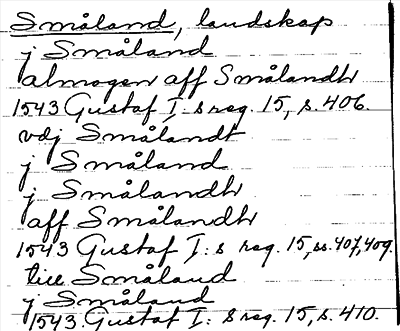 Småland, landskap
j Småland
almogen aff Smålandh
1543 Gustaf I:s reg. 15, s. 406.
vdj Smålandt
j Småland
j Smålandh
aff Smålandh
1543 Gustaf I:s reg. 15, ss. 407, 409.
till Småland
j Småland
1543 Gustaf I:s reg. 15, s. 410.